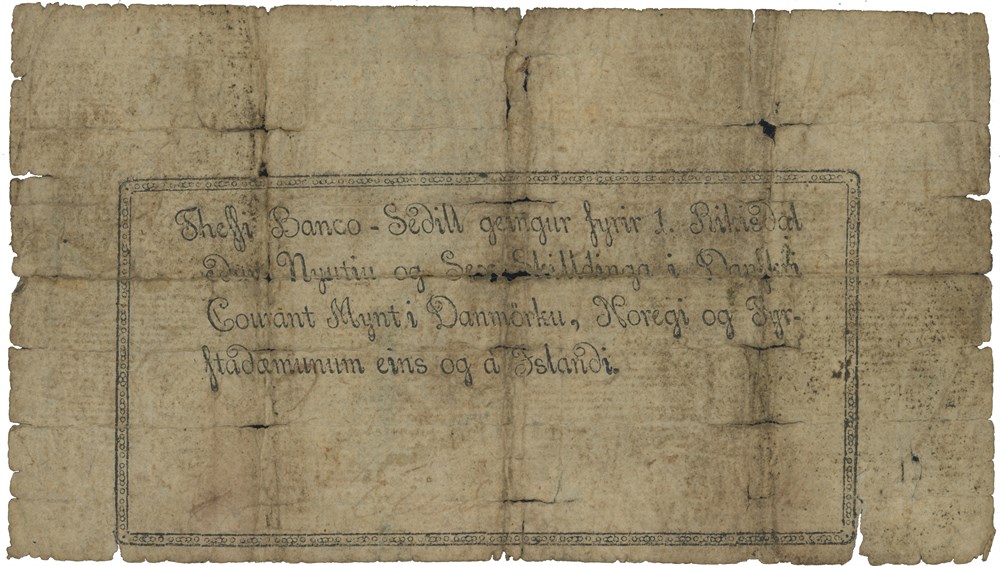 Theſſi Banco-Sedill geingur fyrir 1. Rikisdal
Nyutiu og Sex Skilldinga i Danſkri
Courant Mynt i Danmörku, Noregi og Fyr-
ſtadæmunum eins og a Islandi.